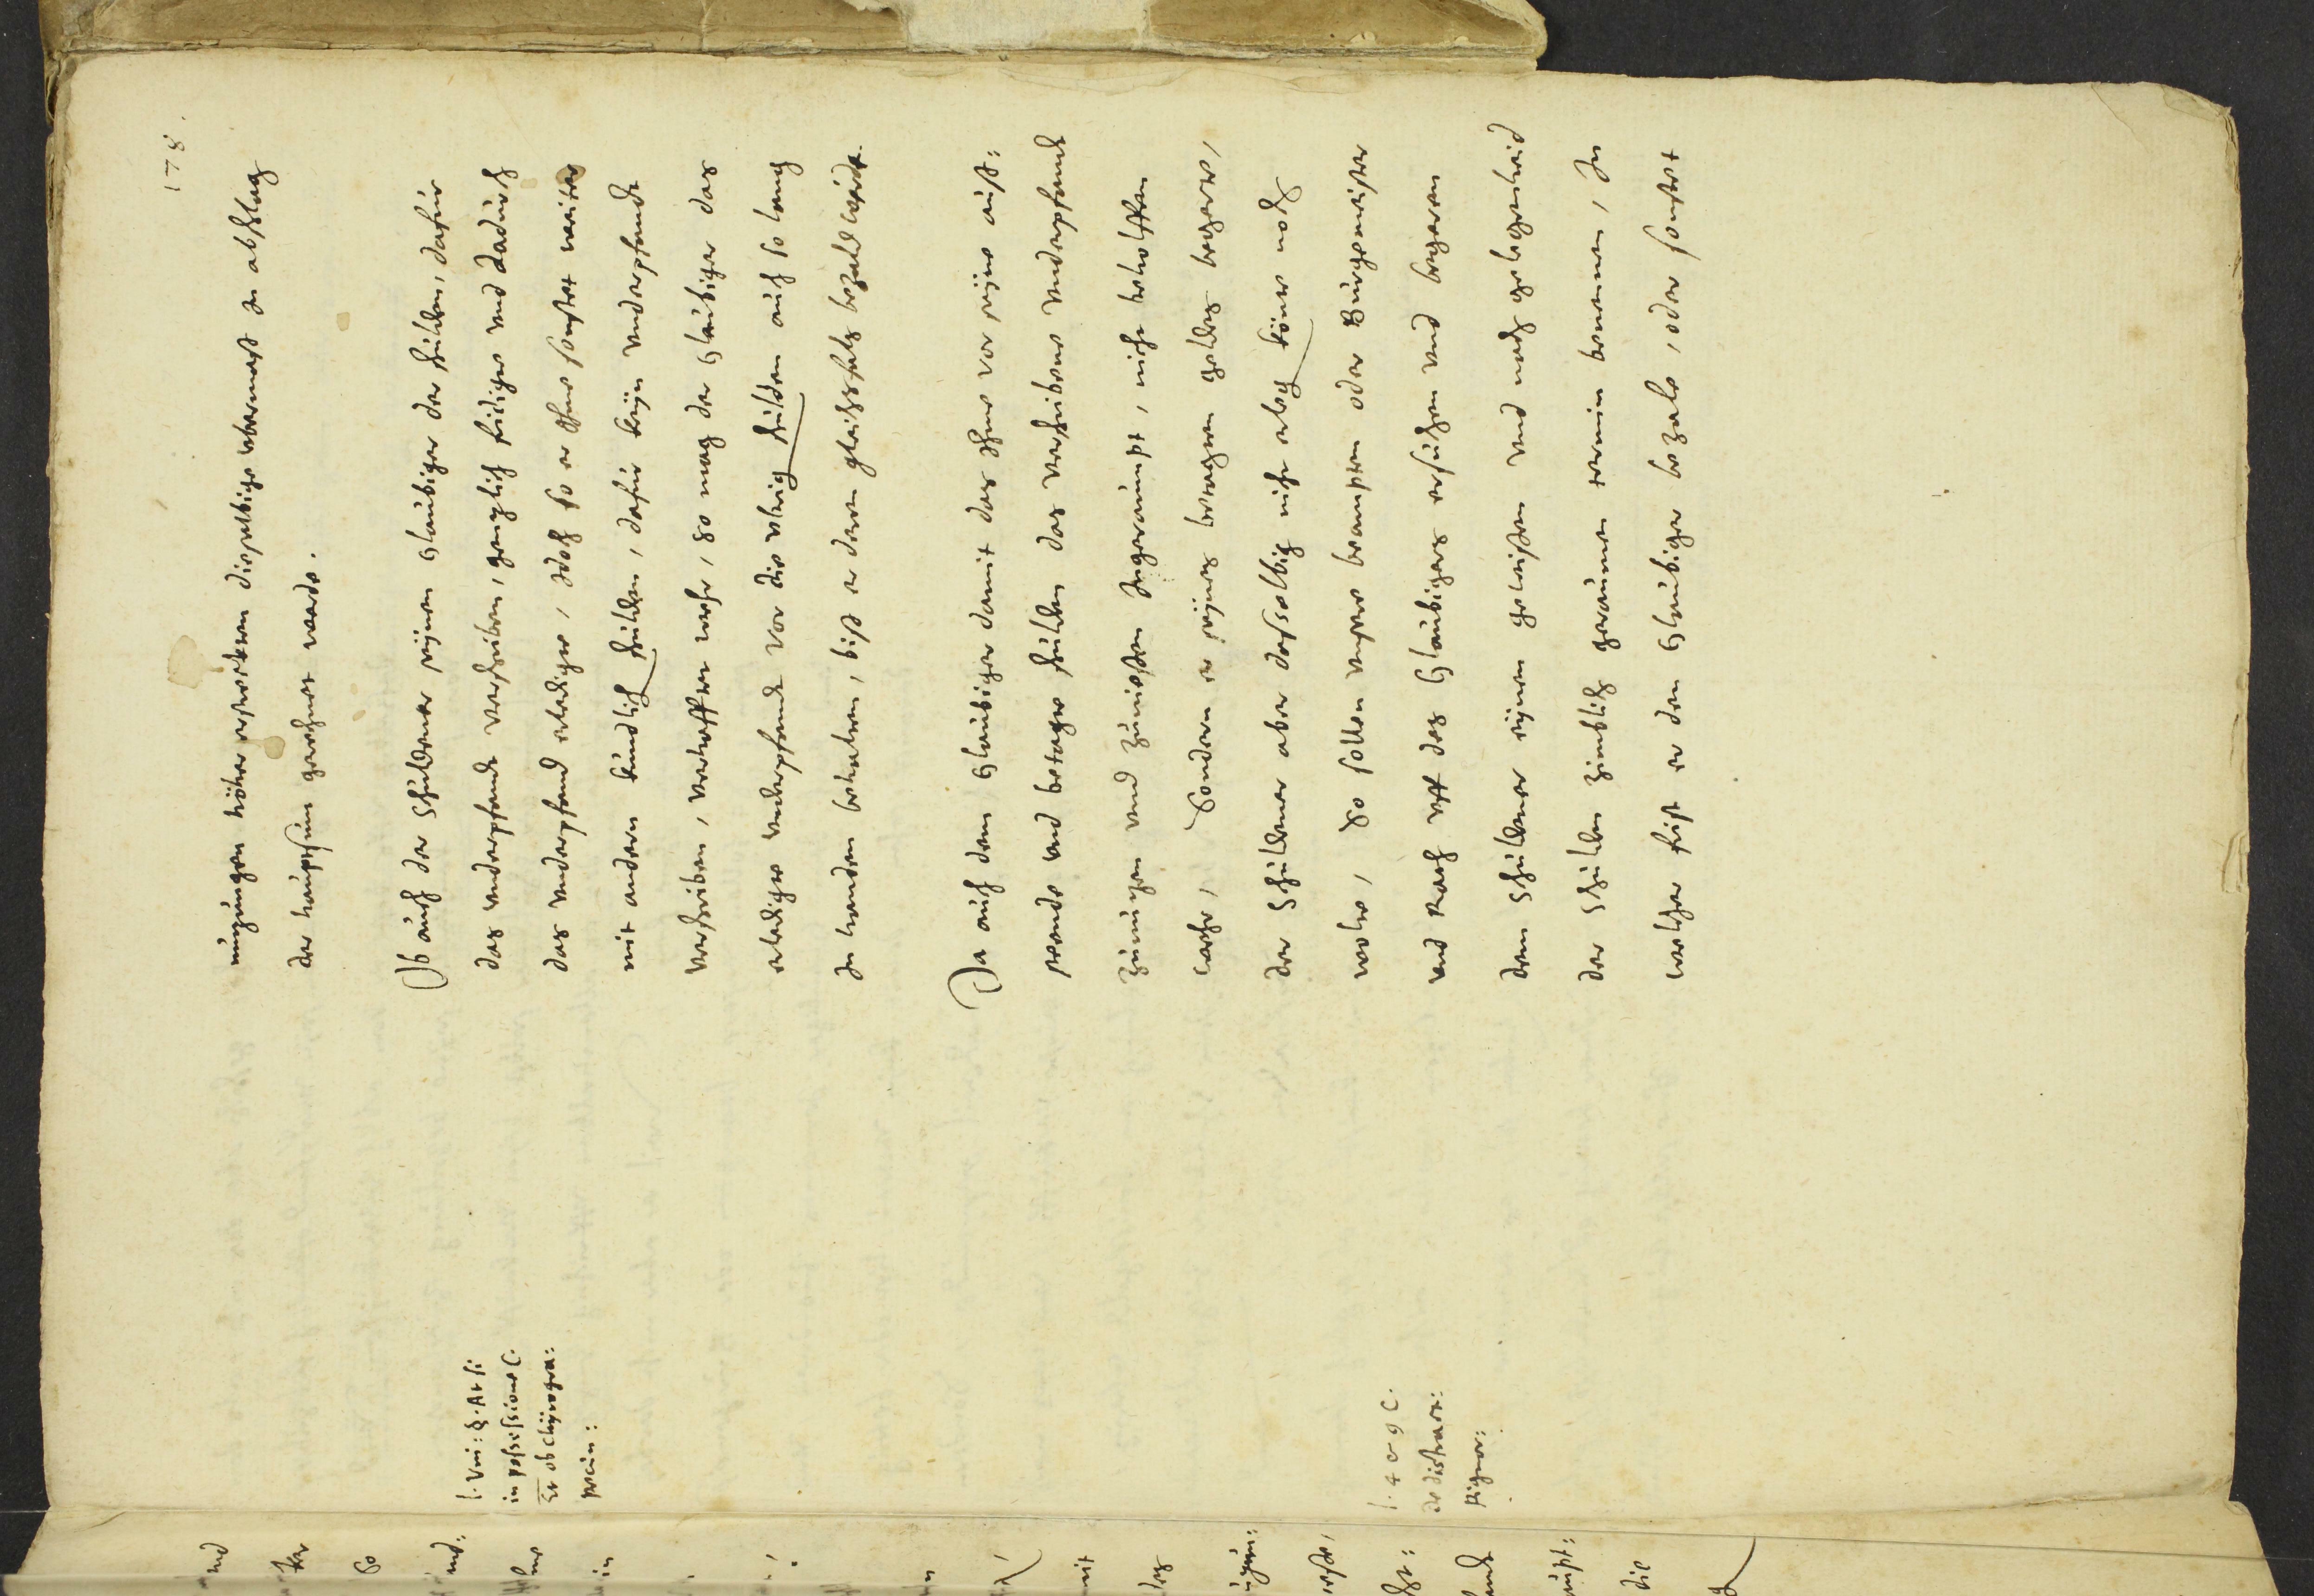 178.
nutzungen höher erstreckten dieselbige ubermaß in abschlag
der hauptsum gerechnet werde.
Ob auch der Schuldener seynen Glaubiger der schulden, dafur
das underpfandt verschriben, gentzlich fridigte und dadurch
das underpfand erledigte, Idoch so er Ihme sonstet weiter
mit andern kundtlich schulden, dafur keyn underpfandt
verschriben, verhafftet wehr, So mag der Glaubiger das
erledigte underpfandt vor die ubrig schulden auch so lang
In handen behalten, biß er deren gleichsfals bezahl wirdt.
Da auch dem Glaubiger damit das Ihme vor seyne auß:
stende und betagte schulden das verschribene underpfandt
zunutzen und zuniessen Ingeraumpt, nicht beholffen
wehre, Sondern er seynes betagten geldes begerte,
der Schuldener aber dasselbig nicht erleg köntte noch
wolte, So sollen unsere beampten oder Burgemeister
und Rath uff des Glaubigers ersuchen und begeren
dem Schuldener eynen geleisten und nach gelegenheid
der Schulden zimblich geraumen termin benennen, In
welcher frist er den Glaubiger bezale, oder sonstet
l. Uni: §. At si
in possessione C.
Et ob chyrogra:
pecun:
l. 4 et 9 C.
de distract:
Pignor: